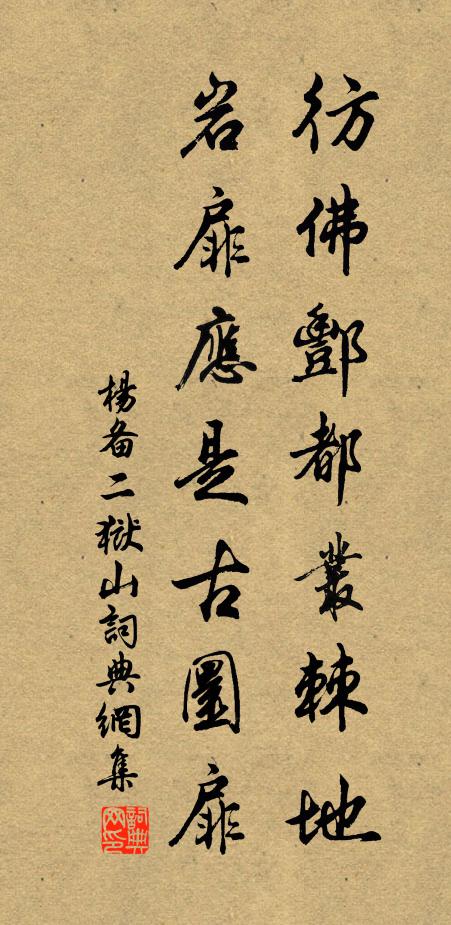 彷佛酆都叢棘地
岩扉應是古圜扉
楊备二獄山詞典網集
詞典網印